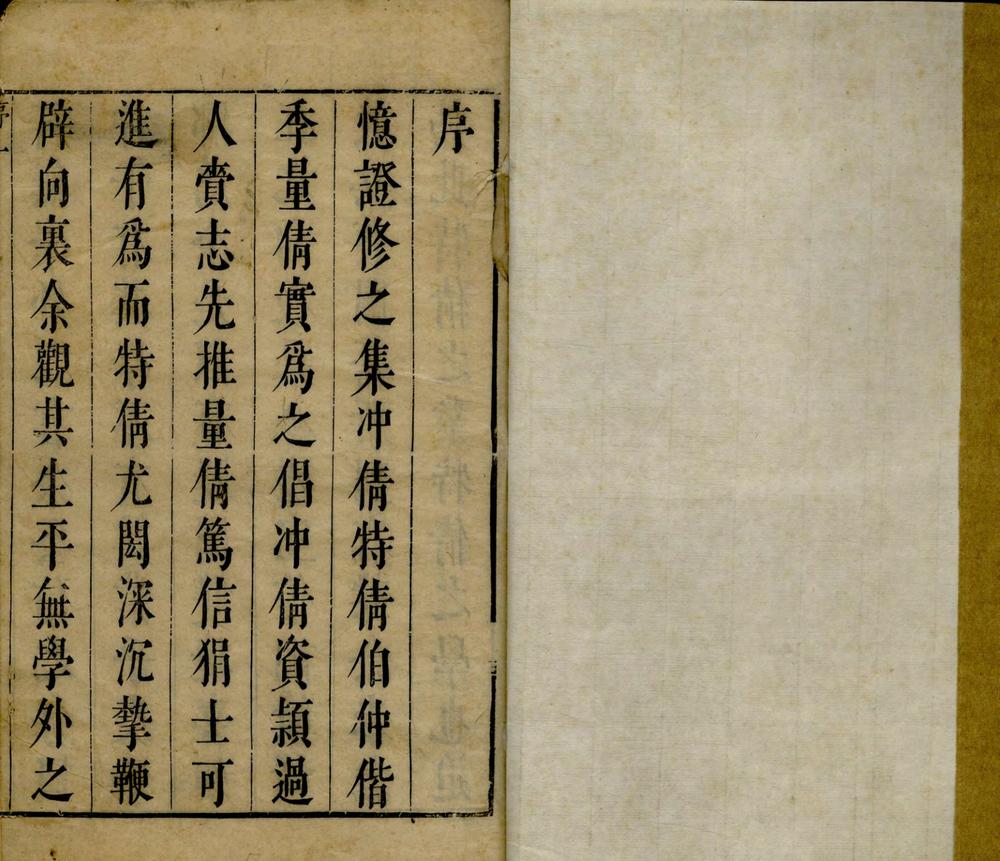 序
憶證修之集冲倩特倩伯仲偕
季量倩實爲之倡冲倩資頴過
人賫志先推量倩篤信狷士可
進有爲而特倩尤閎深沉摯鞭
辟向裏余觀其生平無學外之
序一